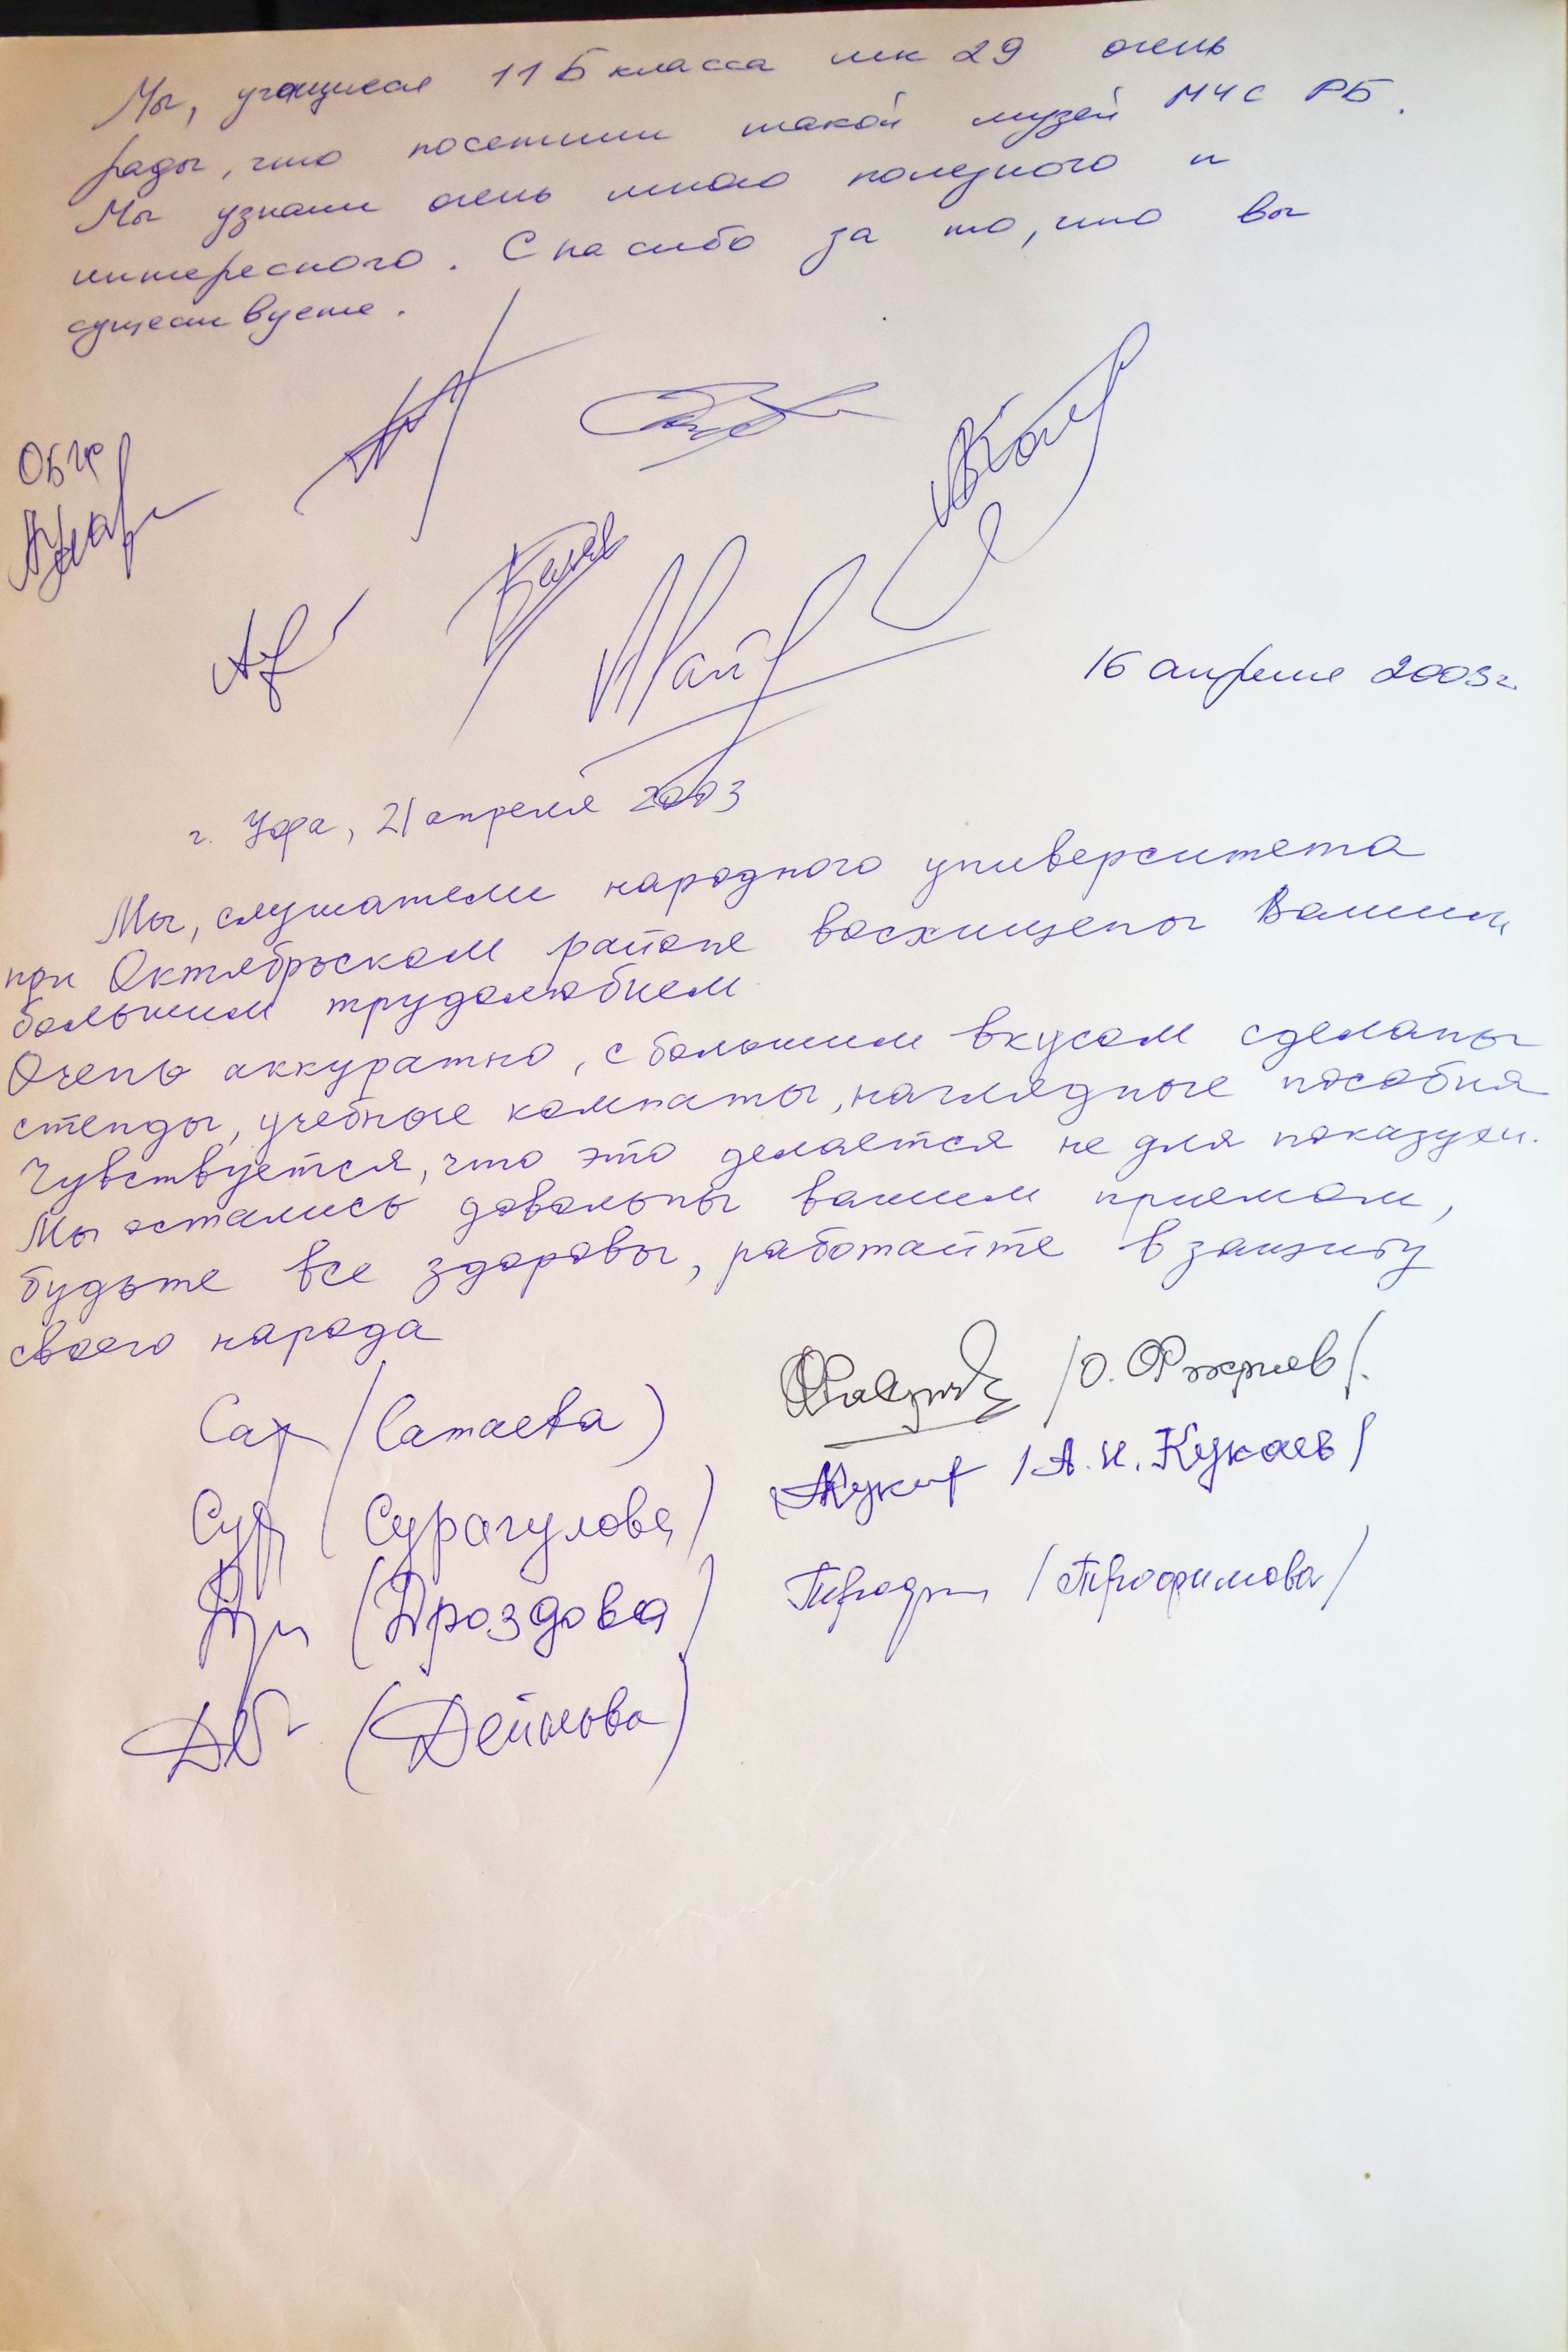 Мы, учащиеся 11 Б класса шк 29 очень
рады, что посетили такой музей МЧС РБ.
Мы узнали очень много полезного и
интересного. Спасибо за то, что вы
существуете.
16 апреля 2003г.
г. Уфа, 21 апреля 2003
Мы, слушатели народного университета
при Октябрьском районе восхищены Вашим
большим трудолюбием
Очень аккуратно, с большим вкусом сделаны
стенды, учебные комнаты, наглядные пособия
Чувствуется, что это делается не для показухи.
Мы остались довольны вашим приемом,
будьте все здоровы, работайте в защиту
своего народа
(Сатаева)
(Сурагулова)
/А.И. Кукаев/
(Дроздова)
/Трофимова/